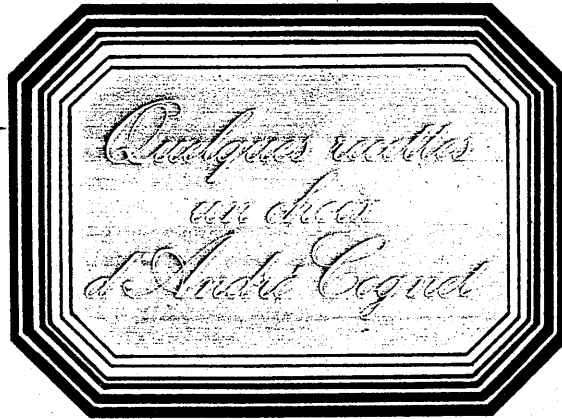 Quelques recettes
un choix
d'André Coquet